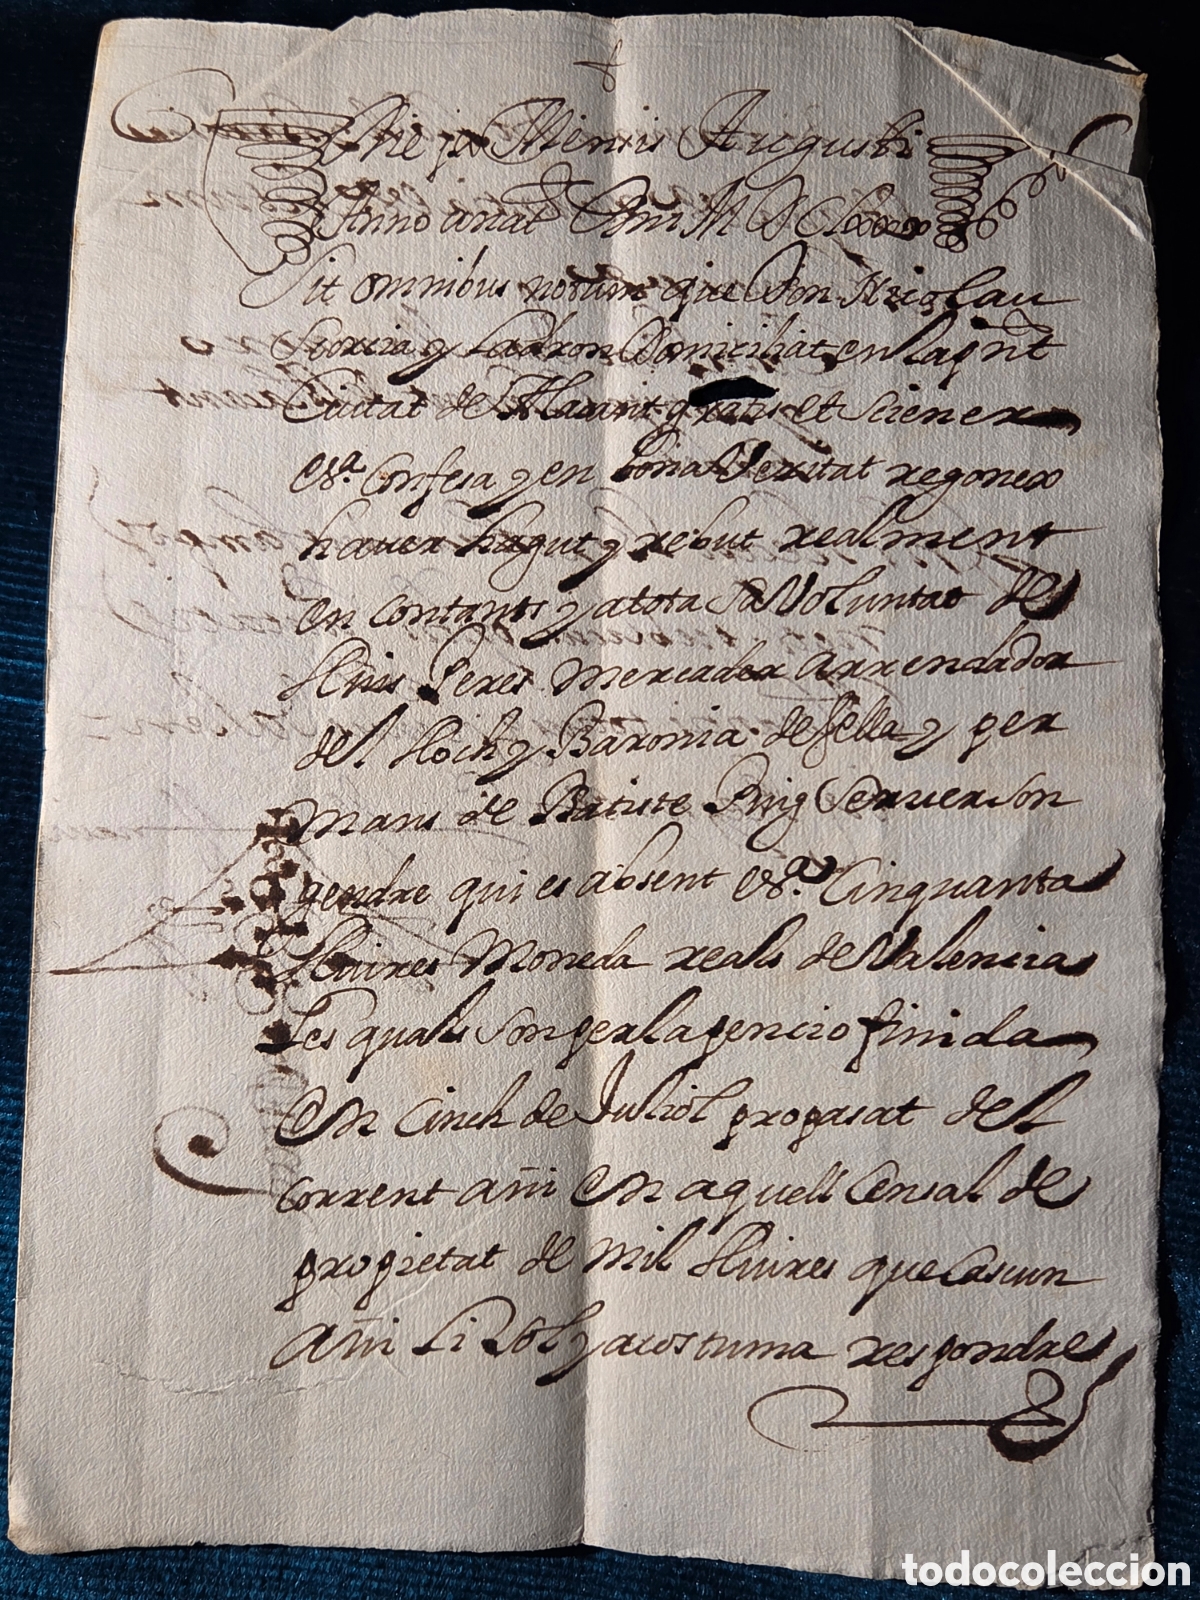 Die po Mensis Augusti
Anno a nat Dom M D C
Sit omnibus notum que Don Nicolau
Scorcia y Ladron Domiciliat en la pnt
Ciutat de Alacant gratis et Scienter
ett.a Confesa y en bona Veritat regonex
haver hagut y rebut realment
en contants y atota sa Voluntat de
Lluis Peres Mercader Arrendador
del lloch y Baronia de Sella y per
mans de Batiste Puig Server Son
gendre qui es absent ett.a Cinquanta
lliures Moneda reals de Valencia
les quals Son per la pencio finida
en Cinch de Juliol propasat del
corrent añi en aquell Censal de
propietat de mil lliures que Cascun
Añi li Sol y acostuma respondre
todocoleccion